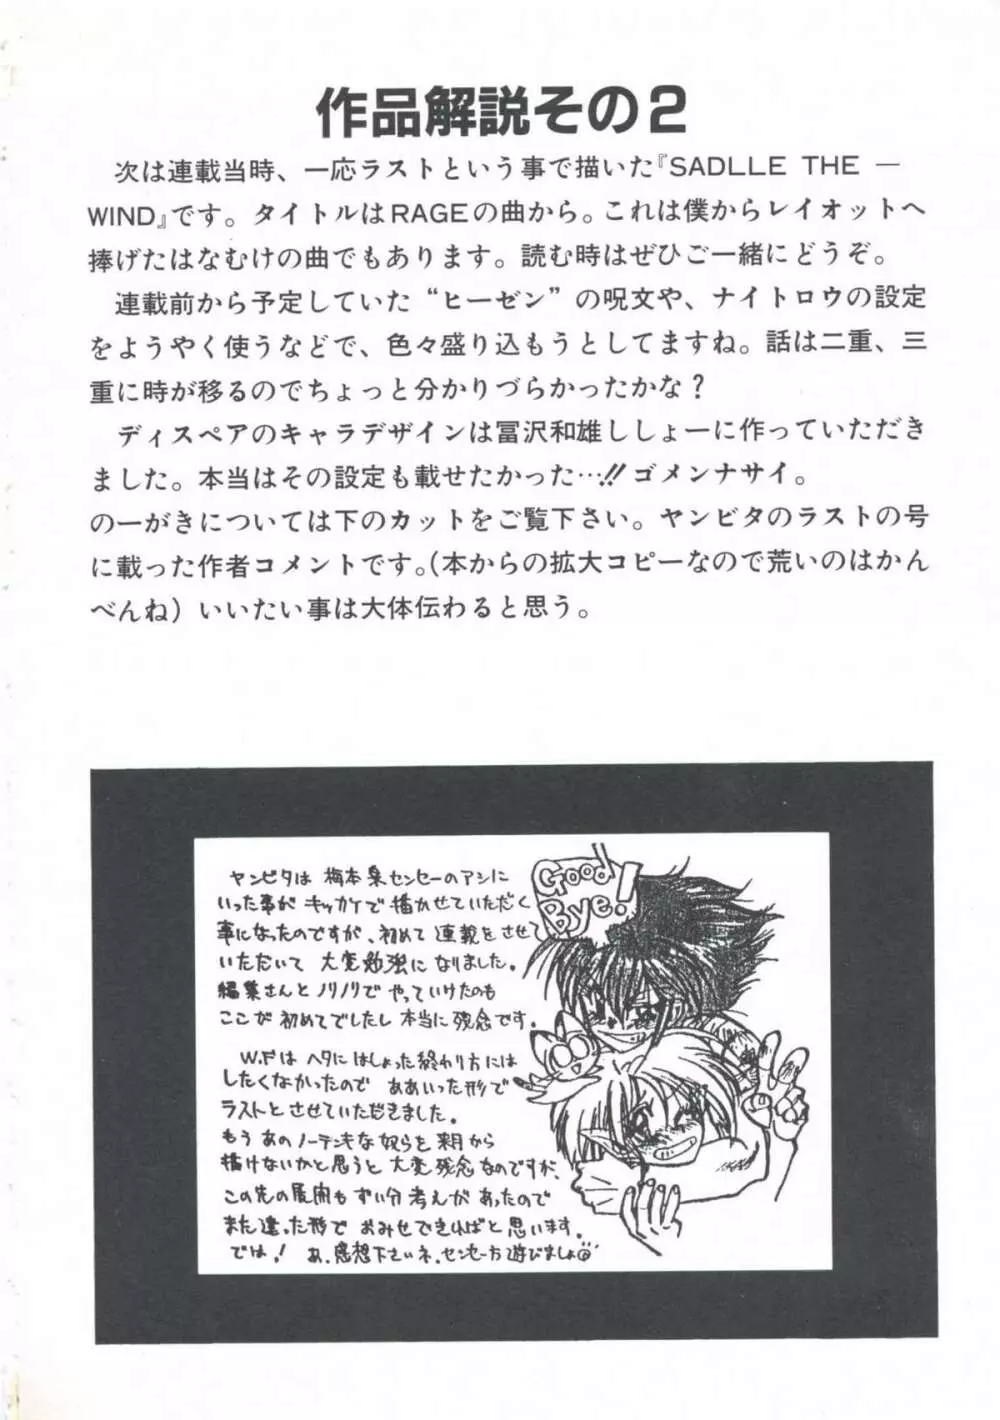 作品解説その2
次は連載当時、一応ラストという事で描いた『SADLLE THE —
WIND』です。タイトルはRAGEの曲から。これは僕からレイオットへ
捧げたはなむけの曲でもあります。読む時はぜひご一緒にどうぞ。
連載前から予定していた“ヒーゼン”の呪文や、ナイトロウの設定
をようやく使うなどで、色々盛り込もうとしてますね。話は二重、三
重に時が移るのでちょっと分かりづらかったかな？
ディスペアのキャラデザインは冨沢和雄ししょーに作っていただき
ました。本当はその設定も載せたかった…!!ゴメンナサイ。
のーがきについては下のカットをご覧下さい。ヤンビタのラストの号
に載った作者コメントです。(本からの拡大コピーなので荒いのはかん
べんね) いいたい事は大体伝わると思う。
Good
Bye!
ヤンビタは 梅本泉センセーのアシに
いった事が キッカケで 描かせていただく
事になったのですが、初めて 連載をさせて
いただいて 大変勉強に なりました。
編集さんと ノリノリで やっていけたのも
ここが 初めてでしたし 本当に 残念です。
W.Fは ヘタに はしょった終わり方には
したくなかったので ああいった形で
ラストと させていただきました。
もう あの ノーテンキな 奴らを 来月から
描けないかと思うと 大変残念 なのですが、
この先の展開も ずい分 考えが あったので
また違った形で おみせできればと 思います。
では! あ、感想下さいネ。センセー方 遊びましょ